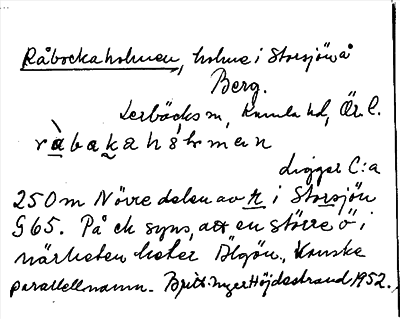 Råbockaholmen, holme i Storsjön å
Berg.
Lerbäcks sn, Kumla hd, Ör. l.
råbakahólmen
Ligger C:a
250m Norra delen av tr i Storsjön
G65. På ek syns, att en större ö i
närheten heter Älgön. Kanske
parallellnamn. Britt Inger Höjdestrand 1952.